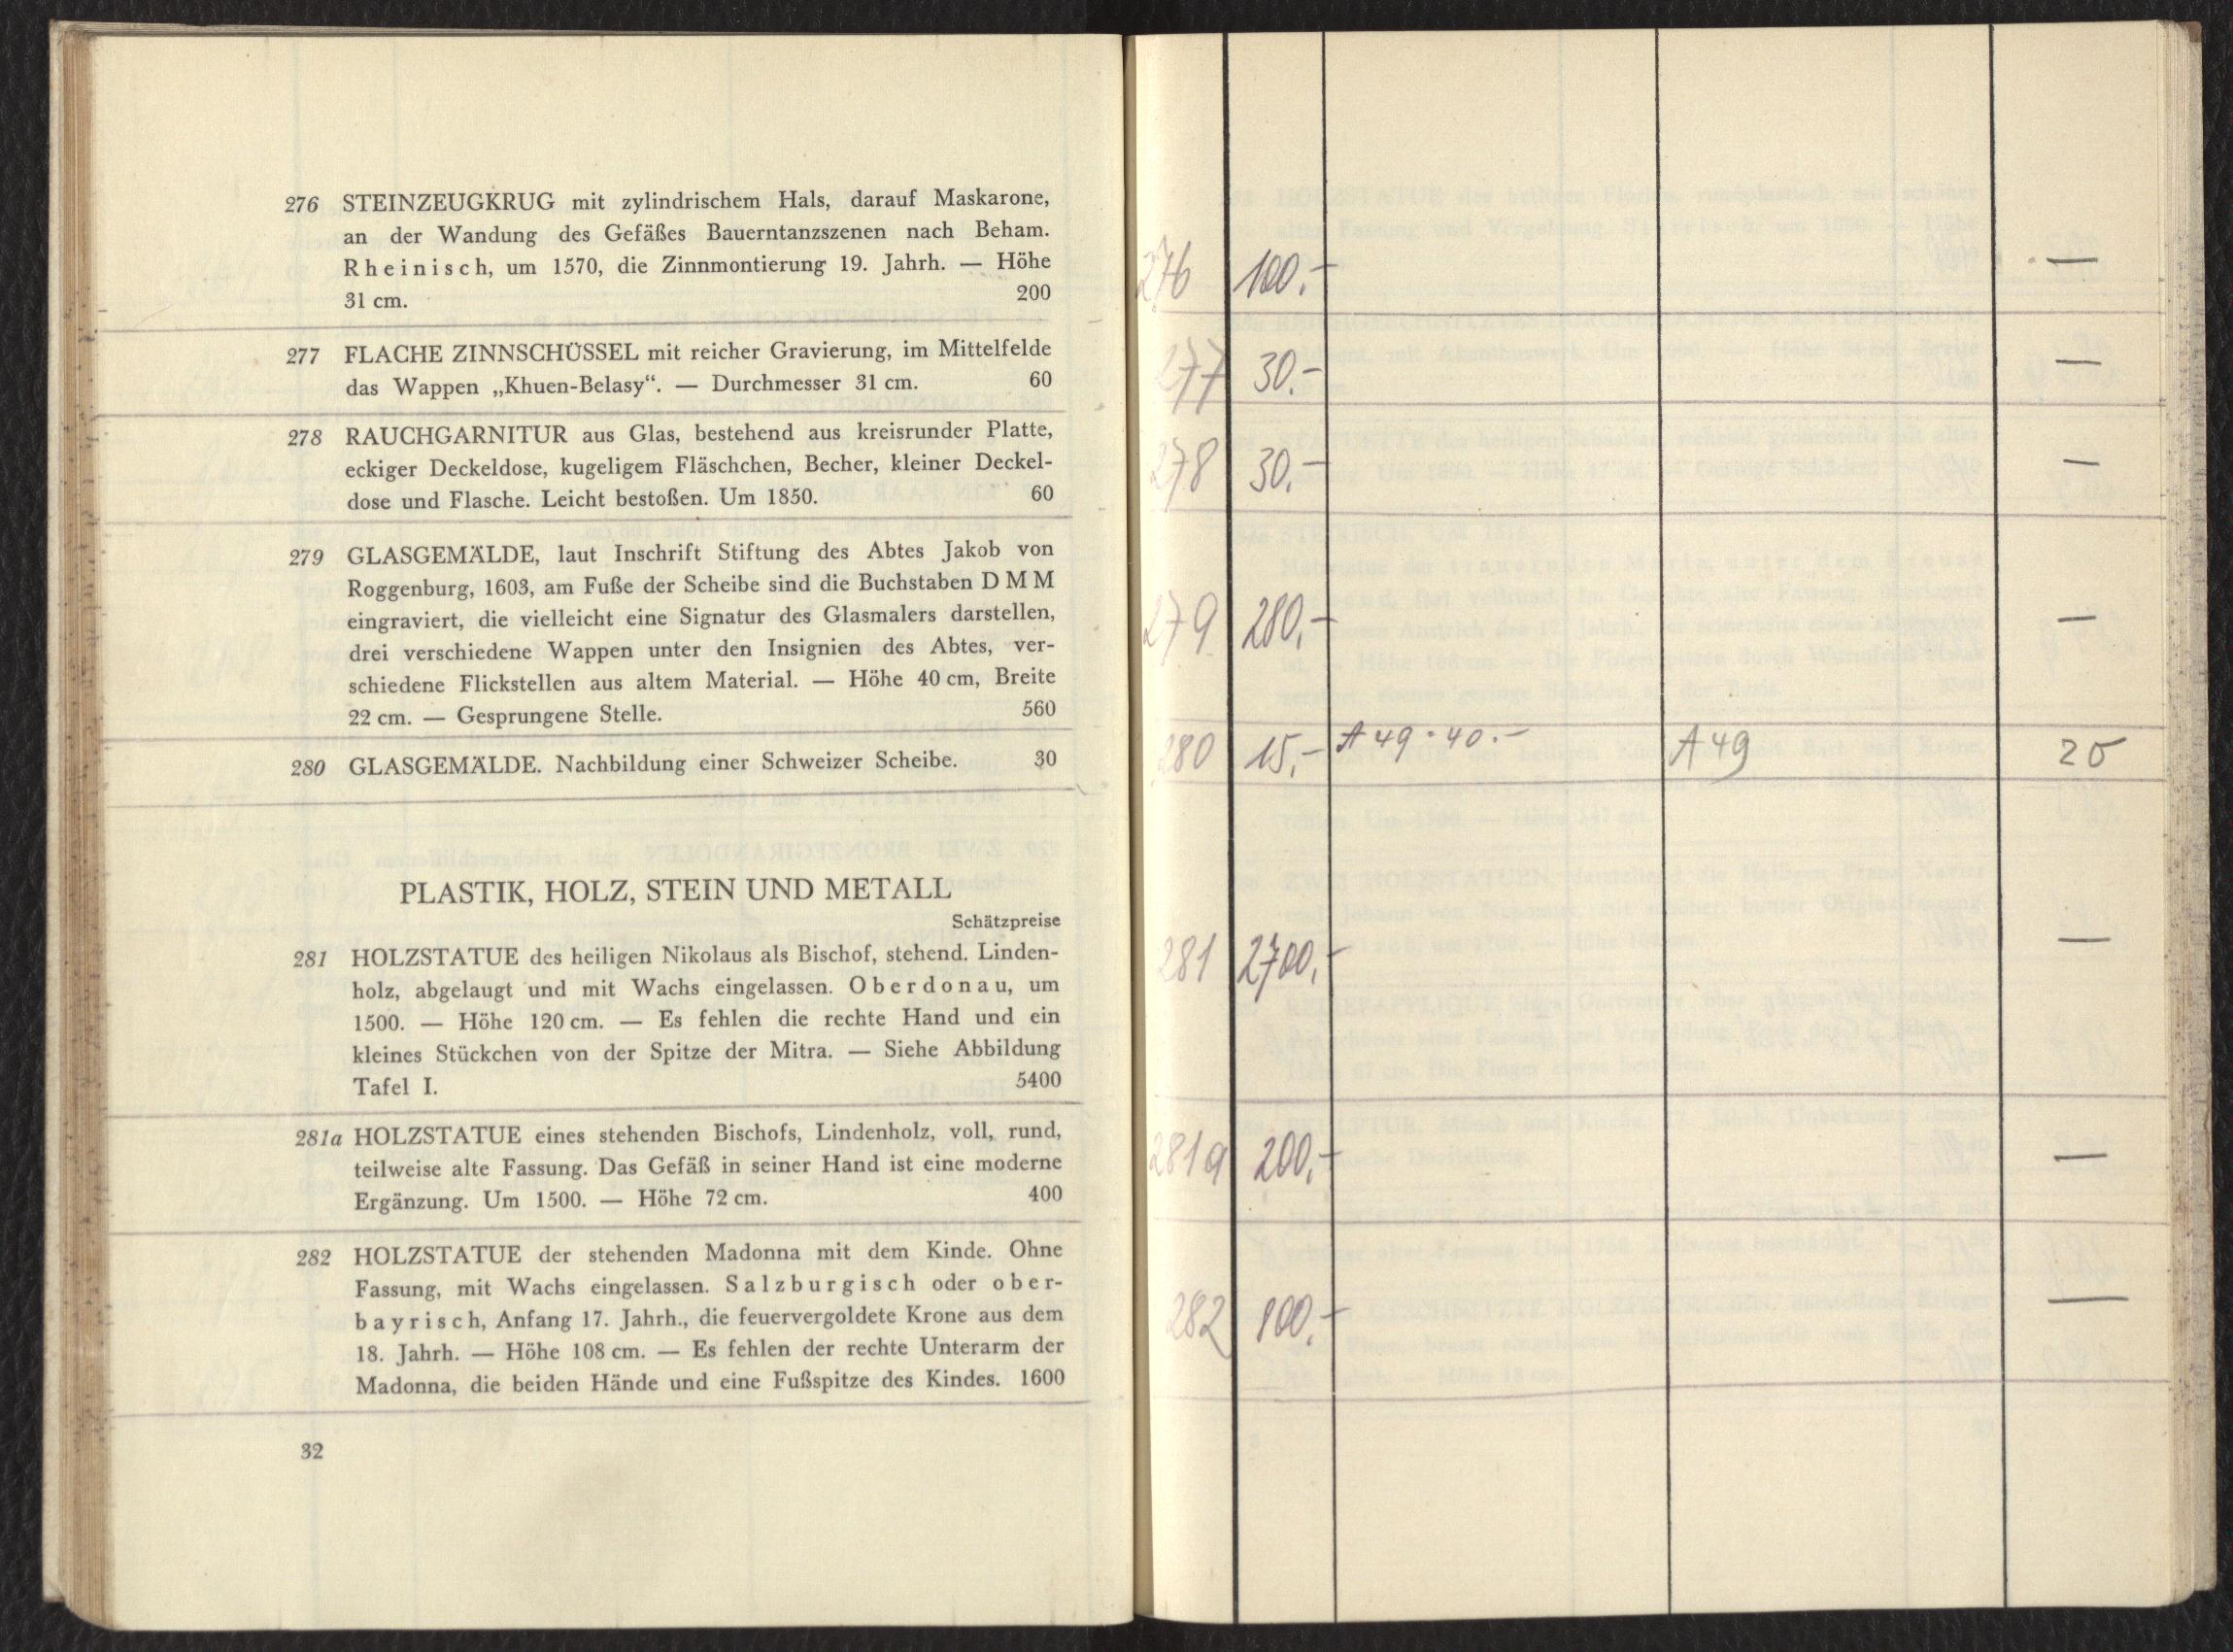 276 STEINZEUGKRUG mit zylindrischem Hals, darauf Maskarone,
an der Wandung des Gefäßes Bauerntanzszenen nach Beham.
Rheinisch, um 1570, die Zinnmontierung 19. Jahrh. — Höhe
31 cm. 200
277 FLACHE ZINNSCHÜSSEL mit reicher Gravierung, im Mittelfelde
das Wappen „Khuen-Belasy“. — Durchmesser 31 cm. 60
278 RAUCHGARNITUR aus Glas, bestehend aus kreisrunder Platte,
eckiger Deckeldose, kugeligem Fläschchen, Becher, kleiner Deckel-
dose und Flasche. Leicht bestoßen. Um 1850. 60
279 GLASGEMÄLDE, laut Inschrift Stiftung des Abtes Jakob von
Roggenburg, 1603, am Fuße der Scheibe sind die Buchstaben D M M
eingraviert, die vielleicht eine Signatur des Glasmalers darstellen,
drei verschiedene Wappen unter den Insignien des Abtes, ver-
schiedene Flickstellen aus altem Material. — Höhe 40 cm, Breite
22 cm. — Gesprungene Stelle. 560
280 GLASGEMÄLDE. Nachbildung einer Schweizer Scheibe. 30
PLASTIK, HOLZ, STEIN UND METALL
Schätzpreise
281 HOLZSTATUE des heiligen Nikolaus als Bischof, stehend. Linden-
holz, abgelaugt und mit Wachs eingelassen. Oberdonau, um
1500. — Höhe 120 cm. — Es fehlen die rechte Hand und ein
kleines Stückchen von der Spitze der Mitra. — Siehe Abbildung
Tafel I. 5400
281a HOLZSTATUE eines stehenden Bischofs, Lindenholz, voll, rund,
teilweise alte Fassung. Das Gefäß in seiner Hand ist eine moderne
Ergänzung. Um 1500. — Höhe 72 cm. 400
282 HOLZSTATUE der stehenden Madonna mit dem Kinde. Ohne
Fassung, mit Wachs eingelassen. Salzburgisch oder ober-
bayrisch, Anfang 17. Jahrh., die feuervergoldete Krone aus dem
18. Jahrh. — Höhe 108 cm. — Es fehlen der rechte Unterarm der
Madonna, die beiden Hände und eine Fußspitze des Kindes. 1600
32
276 100.- —
277 30.- —
278 30.- —
279 280.- —
280 15.- A 49 · 40.- A 49 25
281 2700.- —
281a 200.- —
282 800.- —